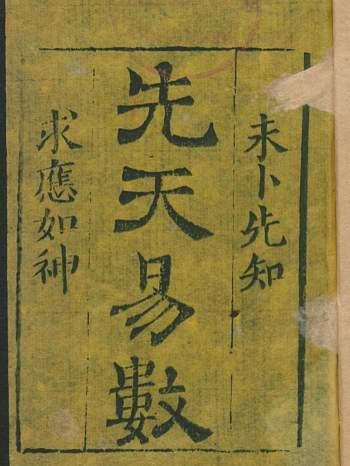 未卜先知
先天易數
求應如神